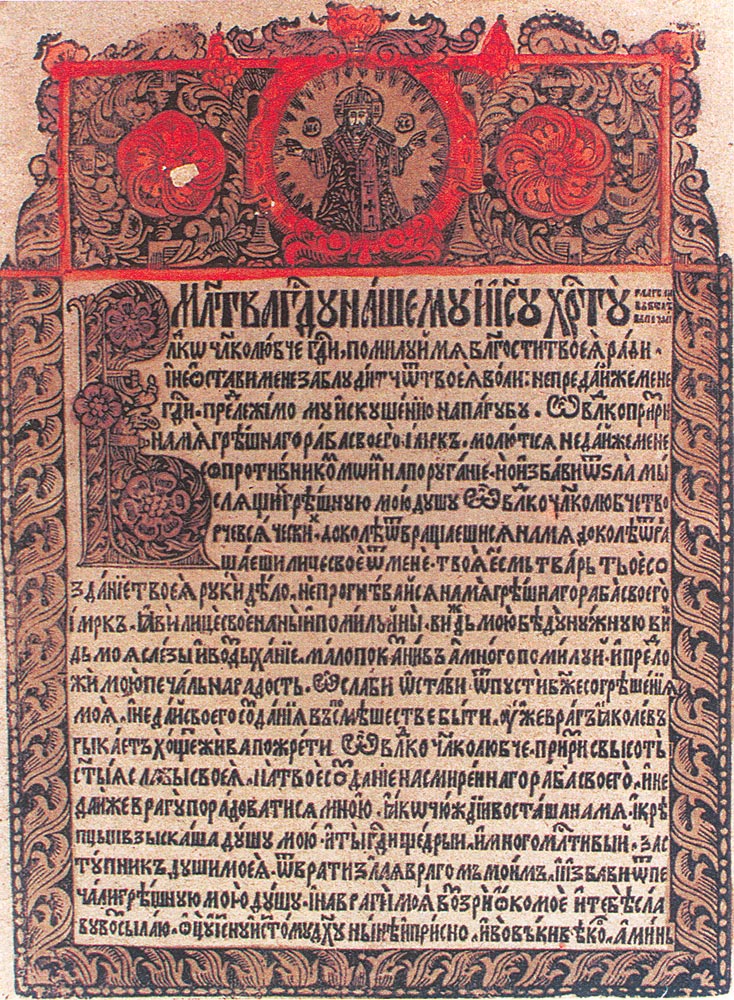 ІС ХС
МЛТВА ГДУ НАШЕМУ ІИСУ ХРТУ
ВЛКѠ ЧЛКОЛЮБЧЕ ГДИ, ПОМИЛУЙ МЯ БЛГОСТИ ТВОЕЯ РАДИ ·
ІНЕ ѠСТАВИ МЕНЕ ЗАБЛУДИТЧ ѾТВОЕЯ ВОЛИ : НЕ ПРЕДАЙЖЕ МЕНЕ
ГДИ · ПРЕЛЕЖІМО МУ ИСКУШЕНІЮ НАПАГУБУ · Ѽ ВЛКО ПРИРИ
НАМЯ ГРѢШНАГО РАБА СВОЕГО · ІМРКЪ · МОЛЮТІСЯ НЕДАЙЖЕ МЕНЕ
СОПРОТИВНИКѠМ МОИМ НАПОРУГАНІЕ · НОИЗБАВИ Ѿ ЅЛА МЫ
СЛЯЩИХ ГРѢШНУЮ МОЮ ДУШУ Ѽ ВЛКО ЧЛКОЛЮБЧЕ ТВО
РЧЕ ВСЯЧЕСКИХ · ДОКОЛѢ ѾВРАЩАЕШИСЯ НАМЯ ДОКОЛѢ ѾРА
ЩАЕШИ ЛИЧЕ СВОЕ Ѿ МЕНЕ · ТВОЯ ЕСМЬ ТВАРЬ ТЬОЕ СО
ЗДАНІЕ ТВОЕЯ РУКИ ДѢЛО · НЕПРОГНѢВАЙСЯ НАМЯ ГРѢШНАГО РАБА СВОЕГО
ІМРКЪ · ІАВИ ЛИЦЕ СВОЕ НАНЫ ИПОМИЛУЙ НЫ · ВИЖДЬ МОЮ БѢДУ НУЖНУЮ ВИ
ДЬ МОЯ СЛЕЗЫ И ВОЗДЫХАНІЕ · МАЛО ПОКАЯНИВЪ А МНОГО ПОМИЛУЙ · ИПРЕЛО
ЖИ МОЮ ПЕЧАЛЬ НАРАДОСТЬ · Ѽ СЛАБИ ѠСТАВИ · ѾПУСТИ БЖЕ СОГРЕШЕНІЯ
МОЯ · ІНЕДАЙ СВОЕГО СОЗДАНІЯ ВЪПОСМѢШЕСТВЕ БЫТИ · ОУЖЕ ВРАГЪ ІАКО ЛЕВЪ
РЫКАЕТЪ ХОЩЕ ЖИВА ПОЖРЕТИ Ѽ ВЛКО ЧЛКОЛЮБЧЕ · ПРИРИ СВЫСОТЪ
СТЫЯ СЛАВЫ СВОЕЯ · НАТВОЕ СОЗДАНІЕ НАСМИРЕННАГО РАБА СВОЕГО · ИНЕ
ДАЙЖЕ ВРАГУ ПОРАДОВАТИСЯ МНОЮ · ІАКѠ ЧЮЖДІИ ВОСТАША НАМЯ · ІКРѢ
ПЦЫИ ВЗЫСКАША ДУШУ МОЮ · ИТЫ ГДИ ЩЕДРЫЙ · ИМНОГОМЛТИВЫЙ · ЗАС
ТУПНИКЪ ДУШИ МОЕЯ · ѾВРАТИ ЗЛАЯ ВРАГОМЪ МОИМЪ · ІІЗБАВИ ѾПЕ
ЧАЛИ ГРѢШНУЮ МОЮ ДУШУ · ІНАВРАГИ МОЯ ВОЗРИ ѾКОМОЕ И ТЕБѢ СЛА
ВУ ВОСЫЛАЮ · ѾЦУ ИСНУ ИСТОМУ ДХУ НЫНѢ ИПРИСНО · ИВОВѢКИ ВѢКОВ · АМИНЬ